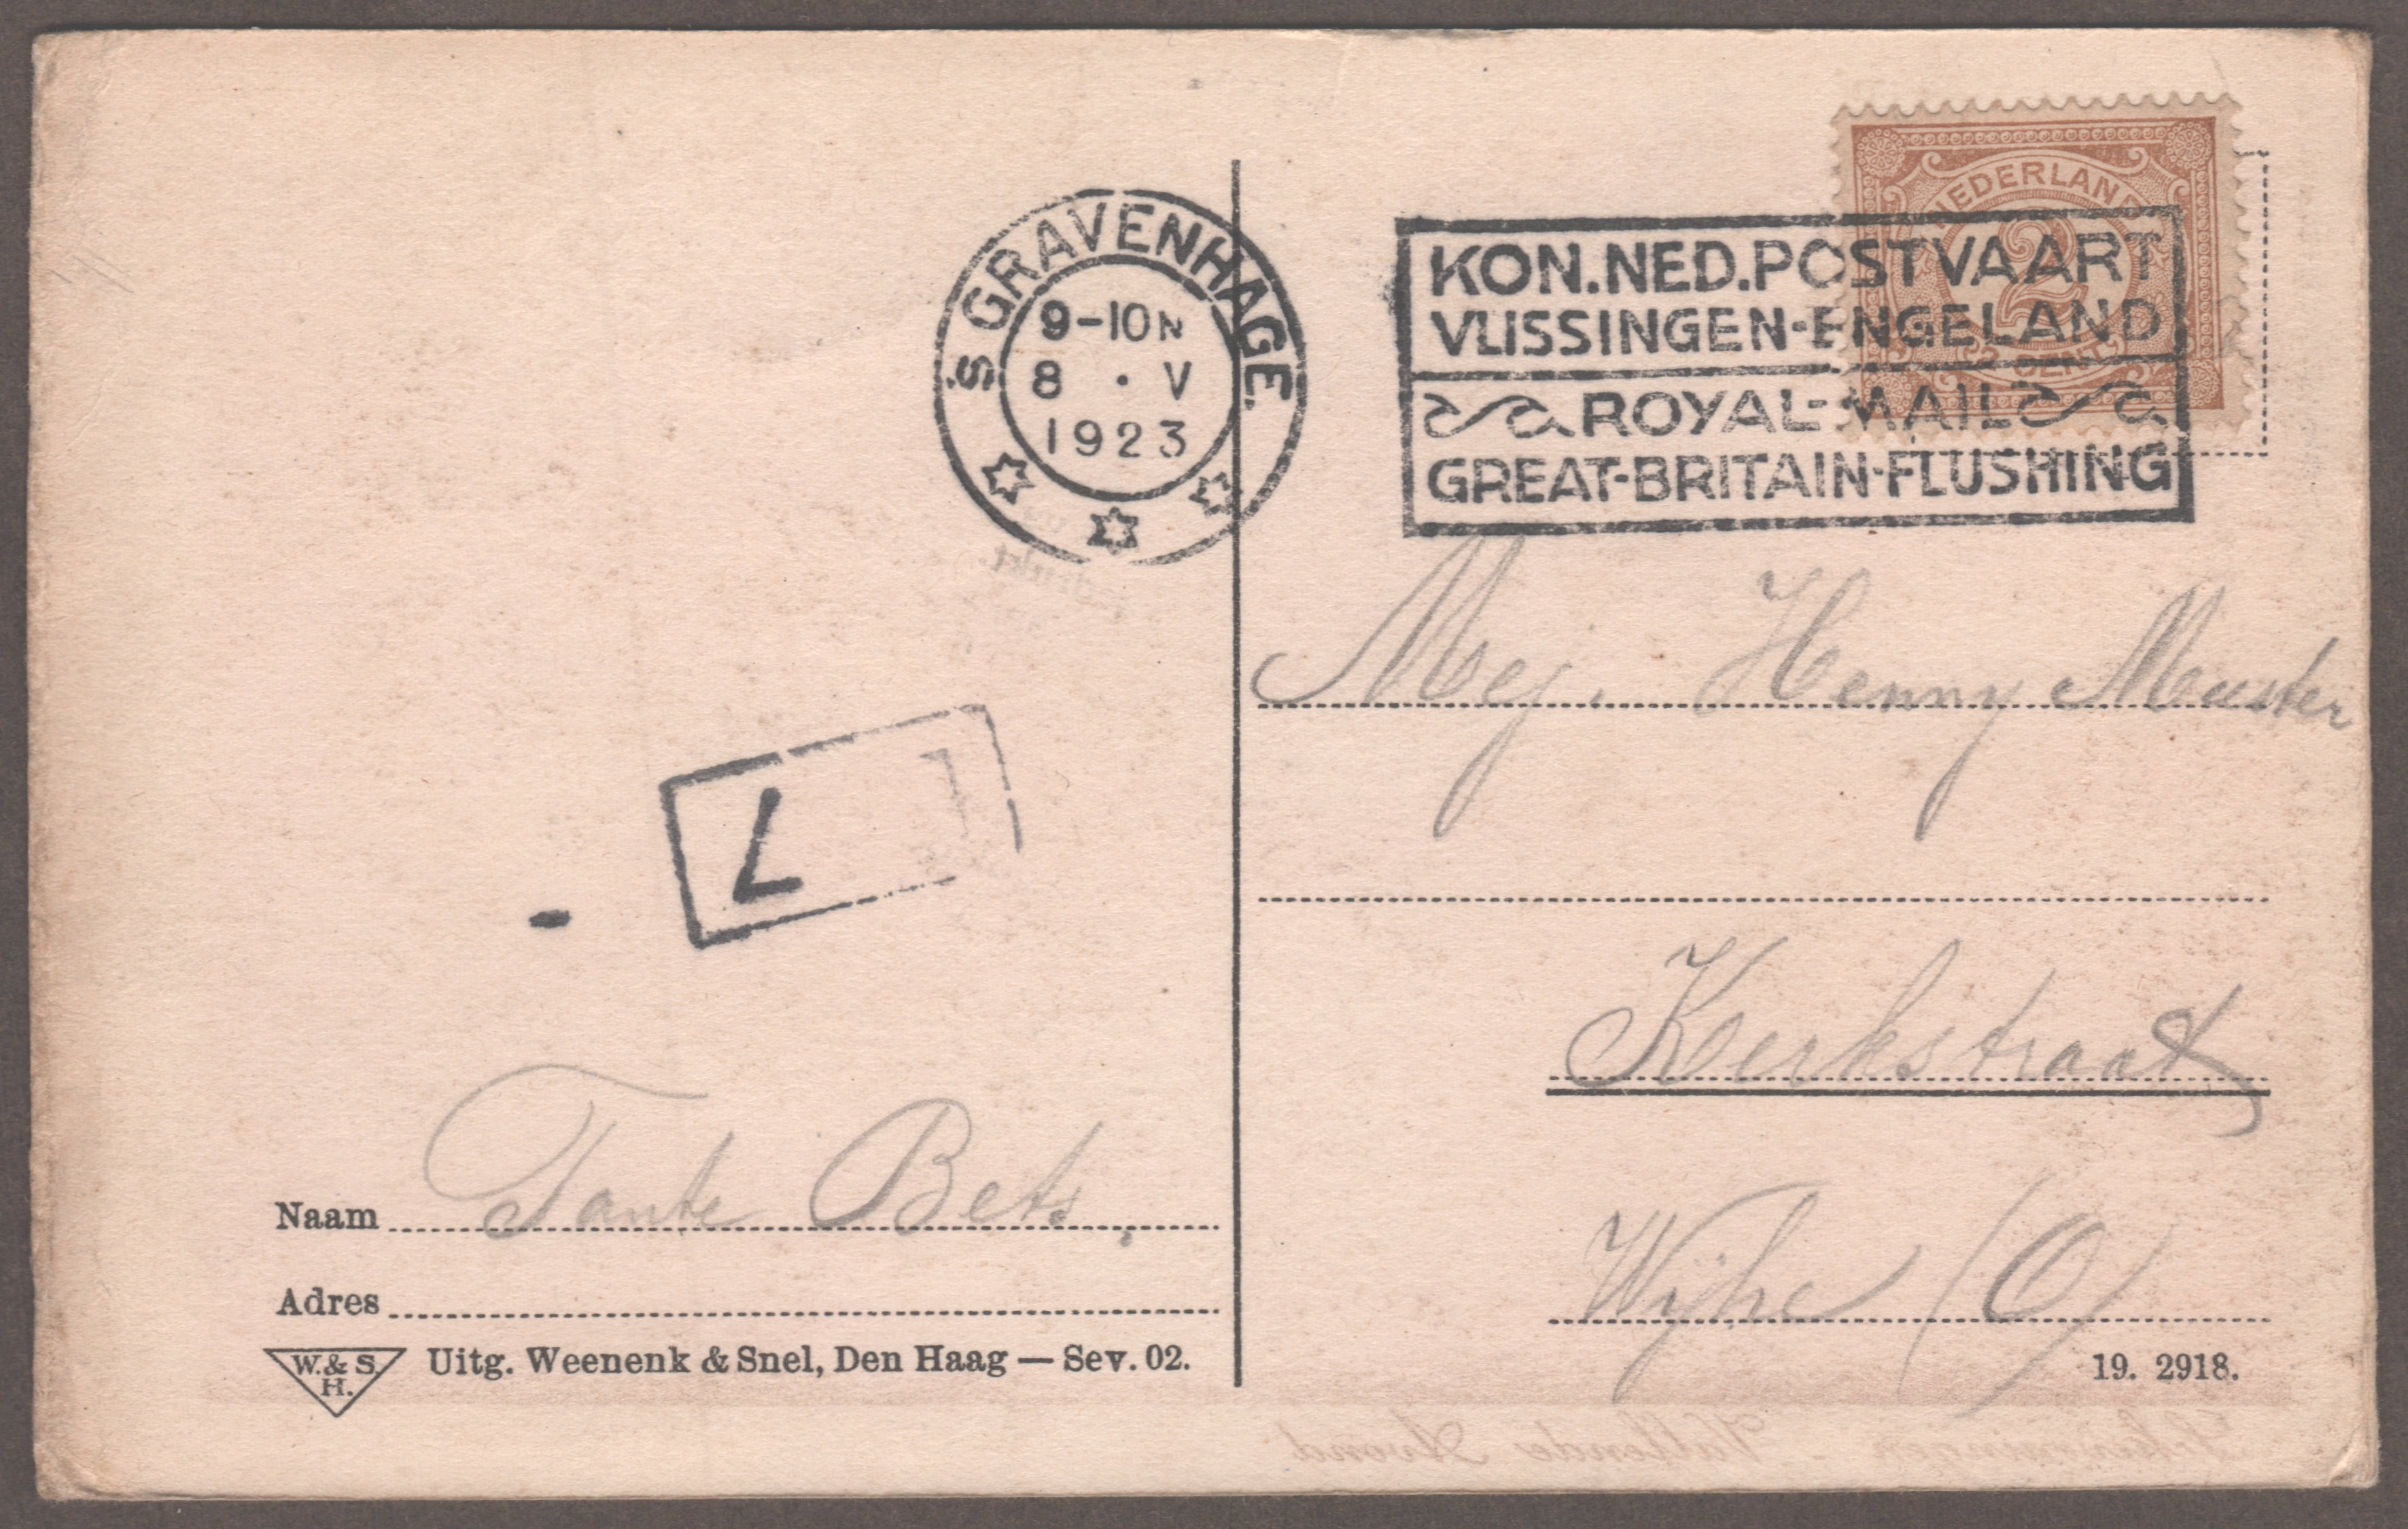 'S GRAVENHAGE.
9-10N
8 · V
1923
NEDERLAND
2
CENT
KON.NED.POSTVAART
VLISSINGEN-ENGELAND
ROYAL-MAIL
GREAT-BRITAIN-FLUSHING
Mej. Henny Muster
7
Kerkstraat
Wijhe (O)
Naam Tante Bets.
Adres
W.& S.
H.
Uitg. Weenenk & Snel, Den Haag — Sev. 02.
19. 2918.
Scheveningen - Vallende Avond